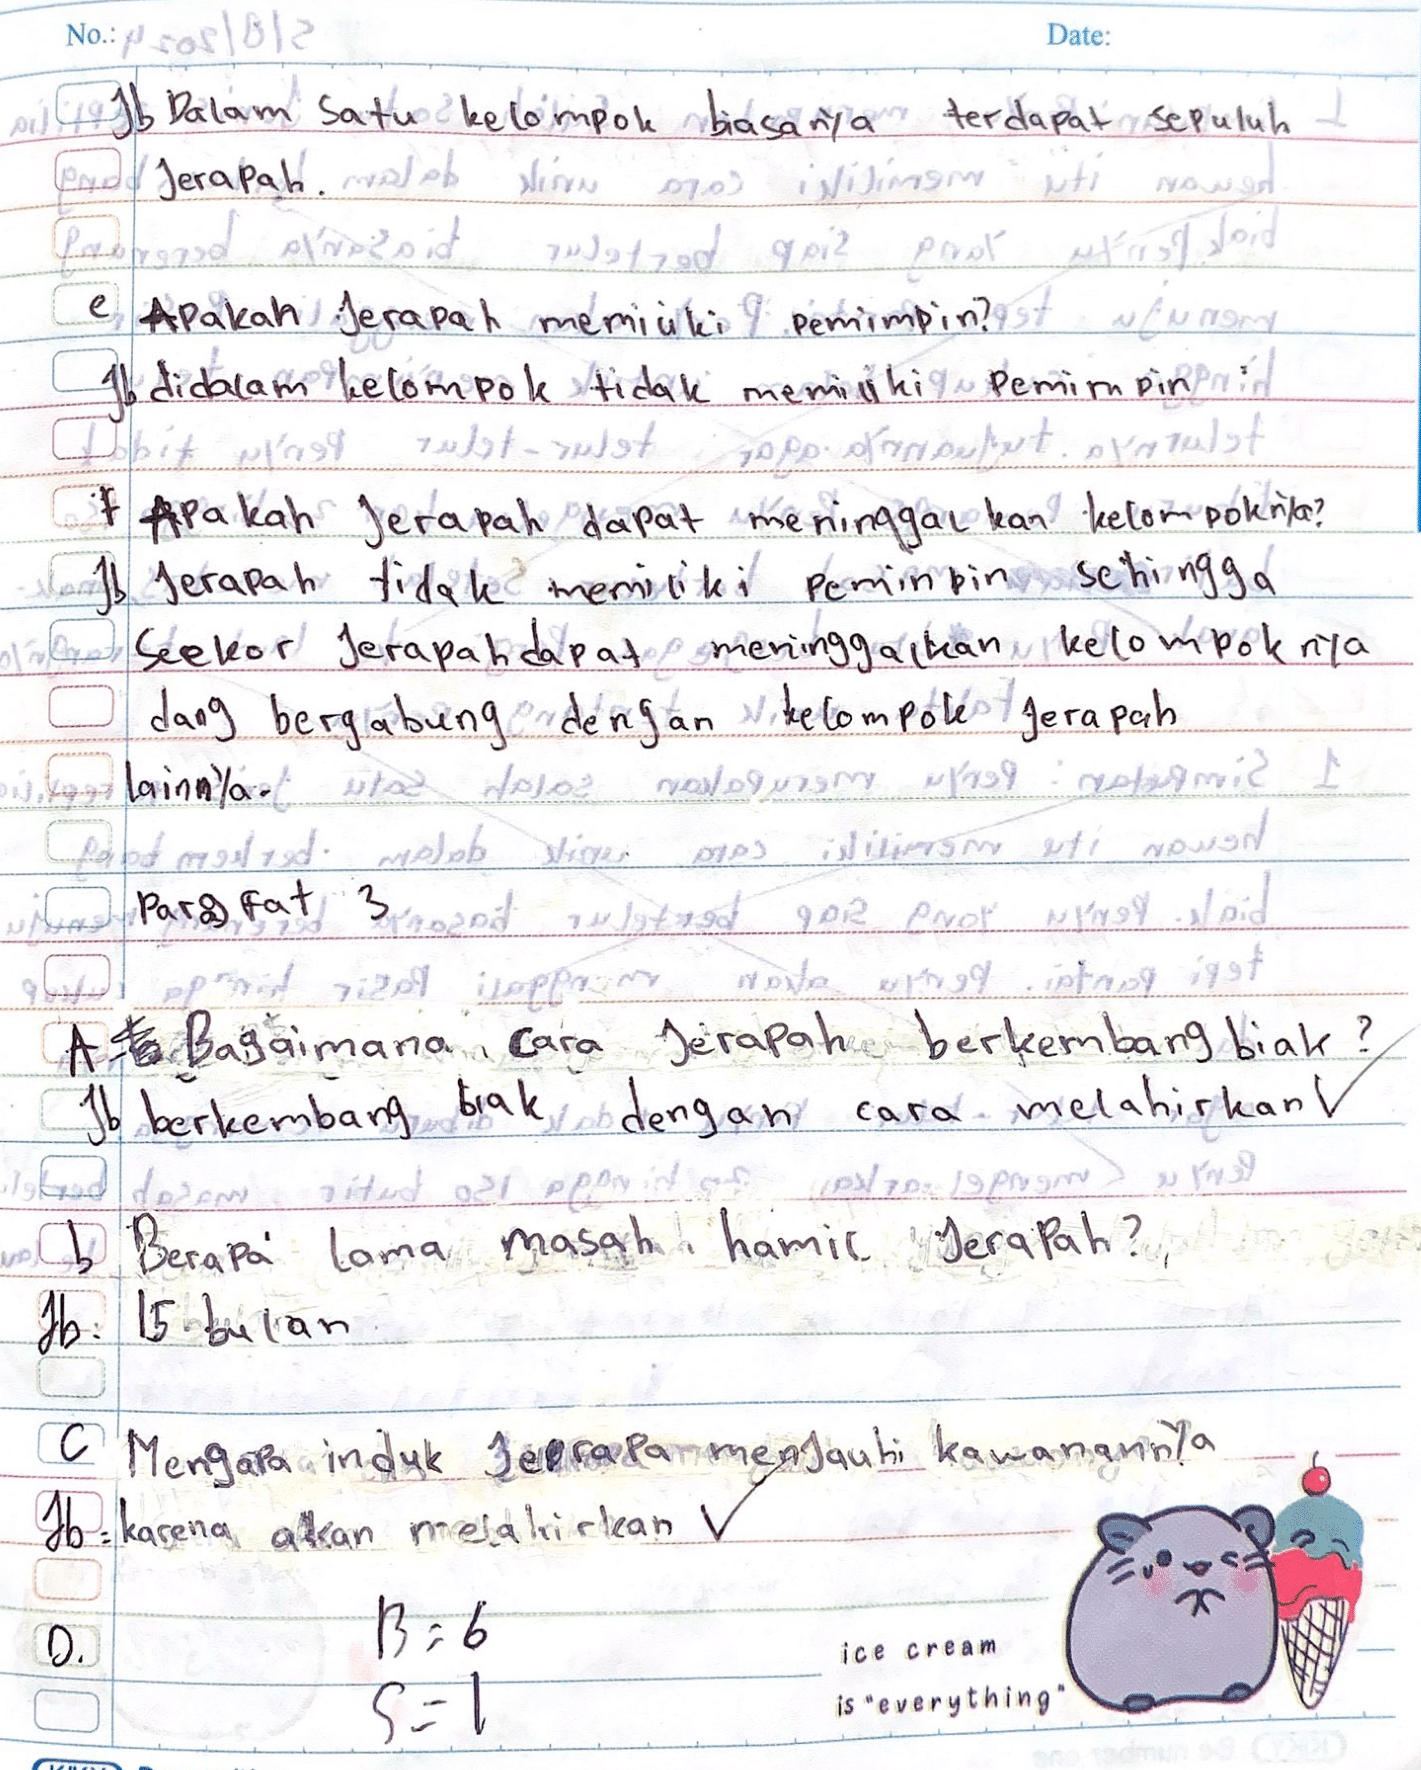 No.:
Date:
Jb Dalam Satu kelompok biasanya terdapat sepuluh
Jerapah.
e Apakah Jerapah memiliki pemimpin?
Jb didalam kelompok tidak memiliki Pemimpin
f Apakah Jerapah dapat meninggalkan kelompoknya?
Jb Jerapah tidak memiliki peminpin sehingga
Seekor Jerapah dapat meninggalkan kelompoknya
dang bergabung dengan kelompok Jerapah
lainnya.
3
A Bagaimana cara Jerapah berkembang biak?
Jb berkembang biak dengan cara melahirkan ✓
b Berapa lama masah hamil Jerapah?
Jb: 15 bulan
C Mengapa induk Jerrapa menjauhi kawanannya
Jb: karena akan melahirkan ✓
D.
B = 6
S = 1
ice cream
is "everything"